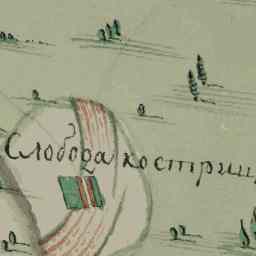 Слобода костриц